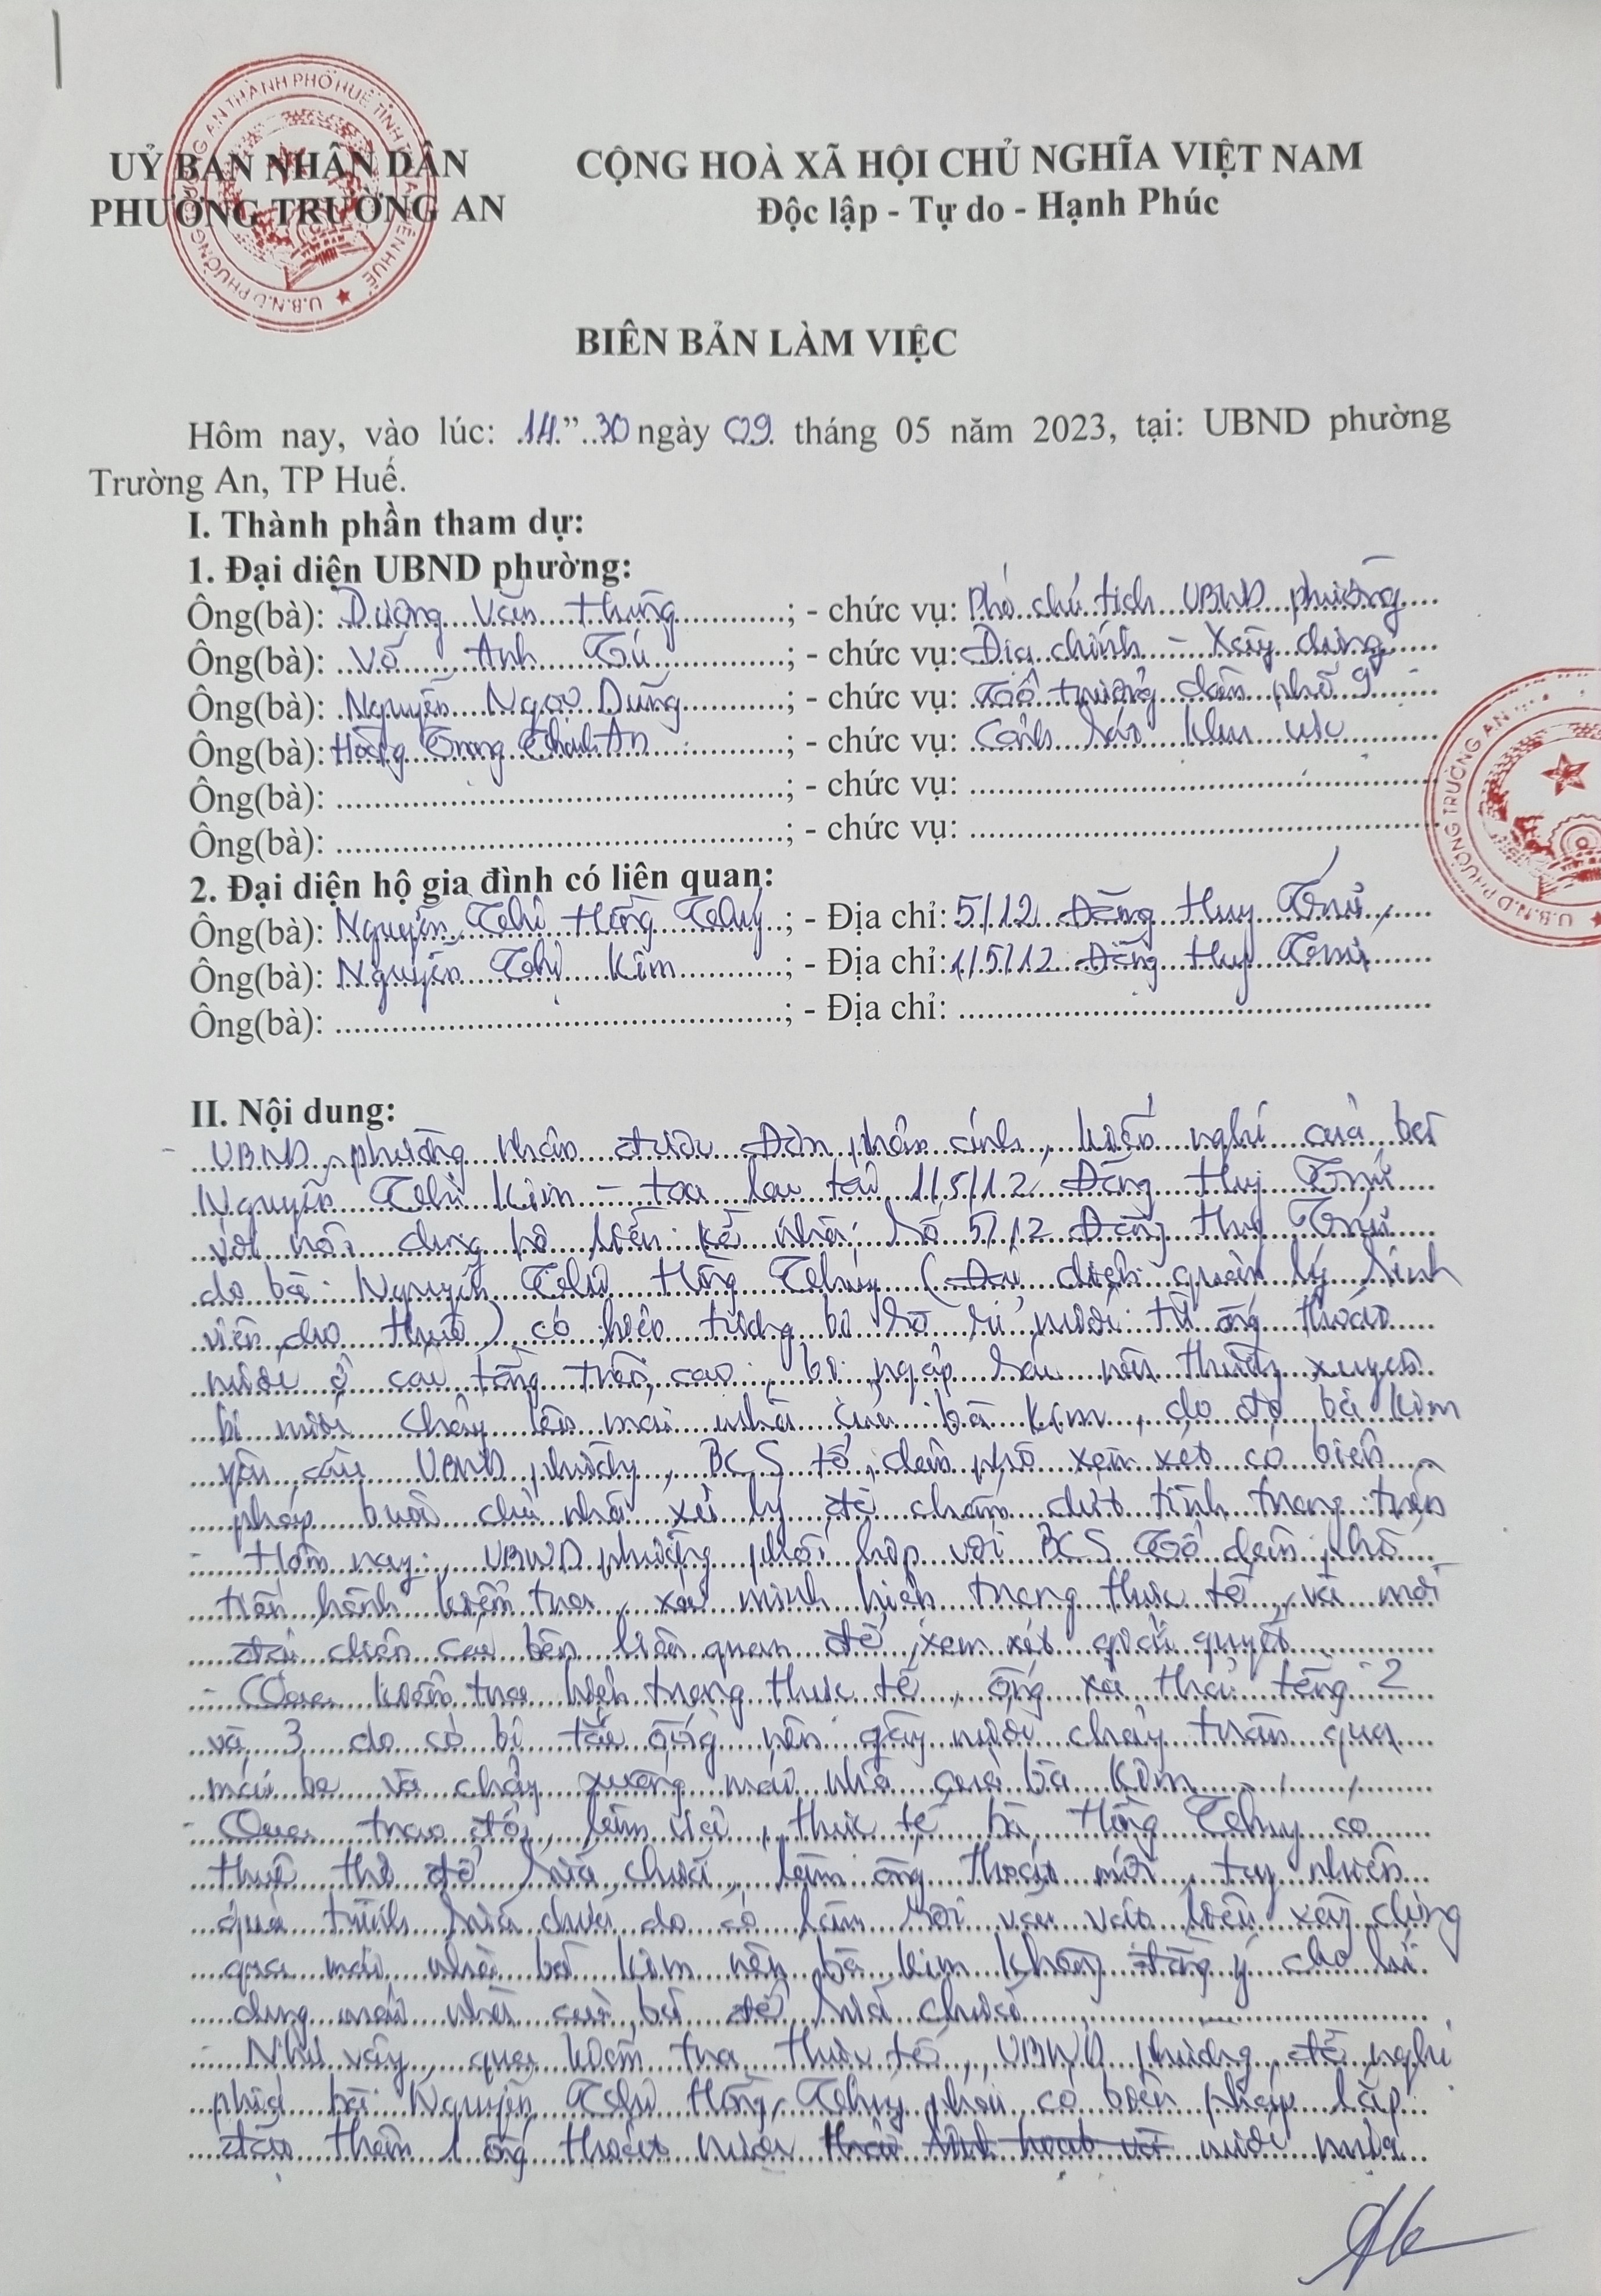 UỶ BAN NHÂN DÂN
PHƯỜNG TRƯỜNG AN
CỘNG HOÀ XÃ HỘI CHỦ NGHĨA VIỆT NAM
Độc lập - Tự do - Hạnh Phúc
BIÊN BẢN LÀM VIỆC
Hôm nay, vào lúc: 14" 30 ngày 09 tháng 05 năm 2023, tại: UBND phường
Trường An, TP Huế.
I. Thành phần tham dự:
1. Đại diện UBND phường:
Ông(bà): Dương Văn Thùng; - chức vụ: Phó chủ tịch UBND phường
Ông(bà): Võ Anh Tú; - chức vụ: Địa chính - Xây dựng
Ông(bà): Nguyễn Ngọc Dũng; - chức vụ: Tổ trưởng dân phố 9
Ông(bà): Hoàng Trọng Thành An; - chức vụ: Cảnh sát khu vực
Ông(bà): ; - chức vụ:
Ông(bà): ; - chức vụ:
2. Đại diện hộ gia đình có liên quan:
Ông(bà): Nguyễn Thị Hồng Thuý; - Địa chỉ: 5/12 Đặng Huy Trứ,
Ông(bà): Nguyễn Thị Kim; - Địa chỉ: 1/5/12 Đặng Huy Trứ
Ông(bà): ; - Địa chỉ:
II. Nội dung:
- UBND phường nhận được Đơn phản ánh, kiến nghị của bà
Nguyễn Thị Kim - toạ lạc tại 1/5/12 Đặng Huy Trứ
với nội dung hộ liền kề nhà số 5/12 Đặng Huy Trứ
do bà Nguyễn Thị Hồng Thuý (Đại diện quản lý sinh
viên cho thuê) có hiện tượng bị rò rỉ nước từ ống thoát
nước ở các tầng trên cao, bị ngập sau nên thường xuyên
bị nước chảy lên mái nhà của bà Kim, do đó bà Kim
yêu cầu UBND phường, BCS tổ dân phố xem xét có biện
pháp buộc chủ nhà xử lý để chấm dứt tình trạng trên
- Hôm nay, UBND phường phối hợp với BCS Tổ dân phố
tiến hành kiểm tra, xác minh hiện trạng thực tế, và mời
đại diện các bên liên quan để xem xét giải quyết
- Qua kiểm tra hiện trạng thực tế, ống xả thải tầng 2
và 3 do có bị tắc ống nên gây nước chảy tràn qua
mái be và chảy xuống mái nhà của bà Kim
- Qua trao đổi, làm việc, thực tế bà Hồng Thuý có
thuê thợ để sửa chữa, làm ống thoát mới, tuy nhiên
quá trình sửa chữa do có làm rơi vãi vật liệu xây dựng
qua mái nhà bà Kim nên bà Kim không đồng ý cho sử
dụng mái nhà của bà để sửa chữa
- Như vậy, qua kiểm tra thực tế, UBND phường đề nghị
phía bà Nguyễn Thị Hồng Thuý phải có biện pháp lắp
đặt thêm 1 ống thoát nước nước mưa